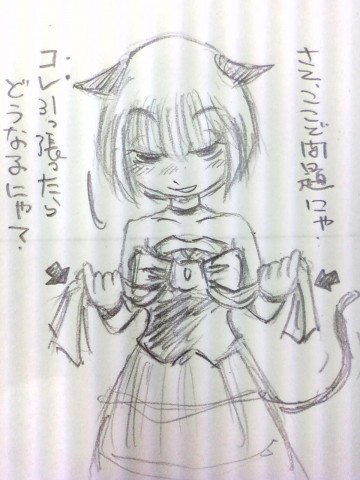 さて、ここで問題にゃ.
コレ引っ張ったら
どうなるにゃ?